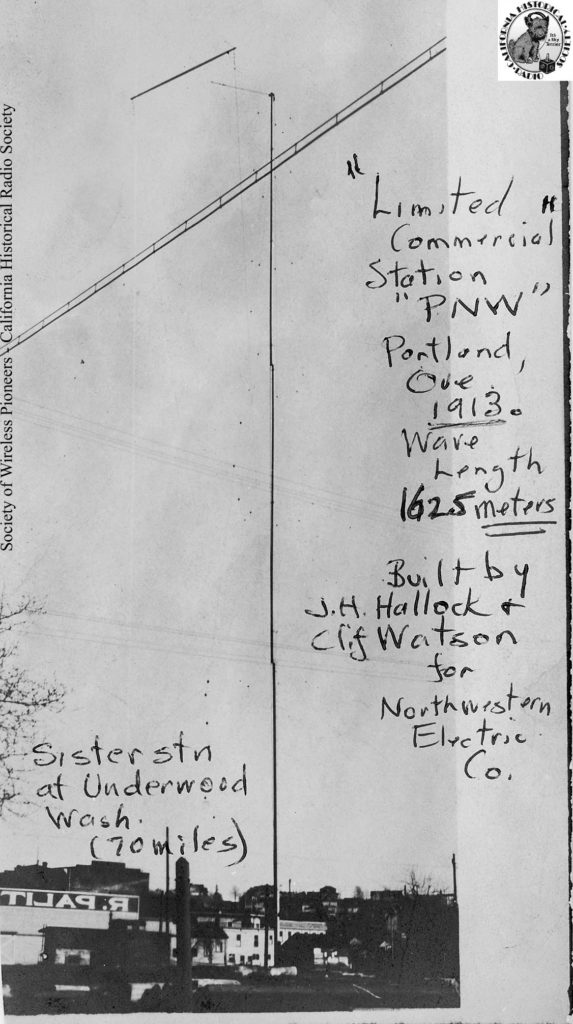 CALIFORNIA HISTORICAL SOCIETY
RADIO
Society of Wireless Pioneers - California Historical Radio Society
"Limited"
Commercial
Station
"PNW"
Portland,
Ore.
1913.
Wave
Length
1625 meters
Built by
J.H. Hallock &
Clif Watson
for
Northwestern
Electric
Co.
Sister stn
at Underwood
Wash.
(70 miles)
R. PALIT